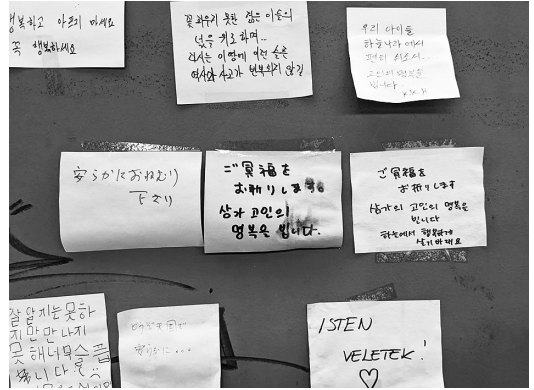 행복하고 아프지 마세요
꼭 행복하세요
꽃 피우지 못한 젊은 이들의
넋을 위로하며..
다시는 이 땅에 이런 슬픈
역사와 사고가 반복되지 않길
우리 아이들
하늘나라에서
편히 쉬소서..
고인의 명복을
빕니다
安らかにおねむり
下さい
ご冥福を
お祈りします
삼가 고인의
명복을 빕니다.
ご冥福を
お祈りします
삼가의 고인의 명복을
빕니다
하늘에서 행복하게
살기 바래요
잘 알지는 못하
지만 만나지
못해 너무 슬픕
니다
天国で
安らかに...
ISTEN
VELETEK!